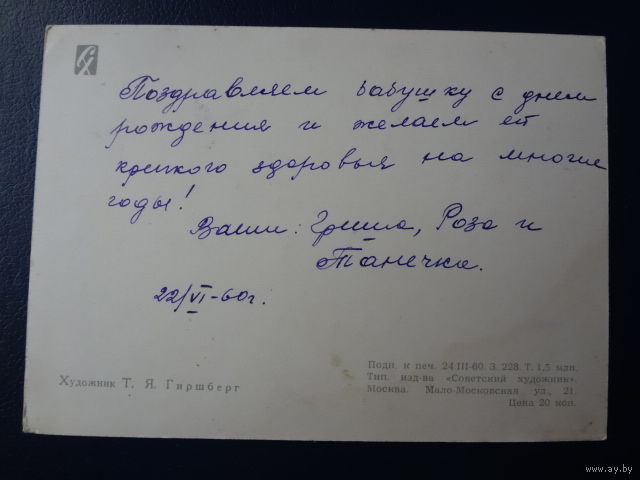 Поздравляем бабушку с днем
рождения и желаем ей
крепкого здоровья на многие
годы!
Ваши: Гриша, Роза и
Танечка.
22/VI-60г.
Художник Т. Я. Гиршберг
Подп. к печ. 24 III-60. З. 228. Т. 1,5 млн.
Тип. изд-ва «Советский художник».
Москва. Мало-Московская ул., 21.
Цена 20 коп.
www.ay.by